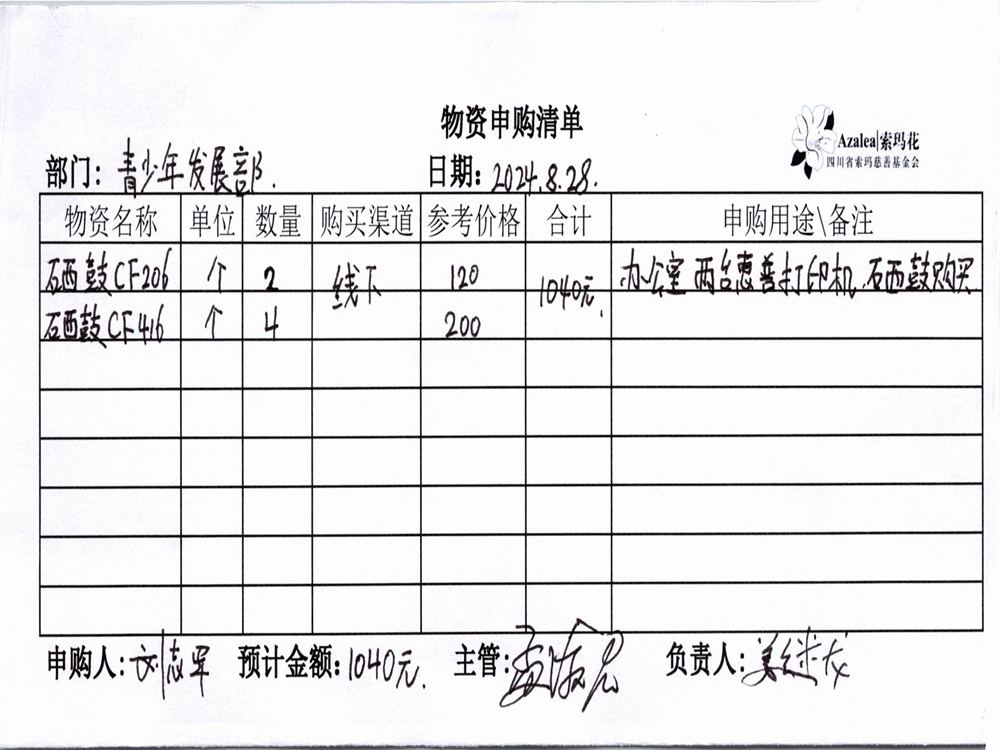 物资申购清单
Azalea|索玛花
四川省索玛慈善基金会
部门：青少年发展部. 日期：2024.8.28.
物资名称 单位 数量 购买渠道 参考价格 合计 申购用途\备注
硒鼓CF206 个 2 线下 120 1040元. 办公室两台惠普打印机,硒鼓购买
硒鼓CF416 个 4 200
申购人：刘志军 预计金额：1040元. 主管： 负责人：